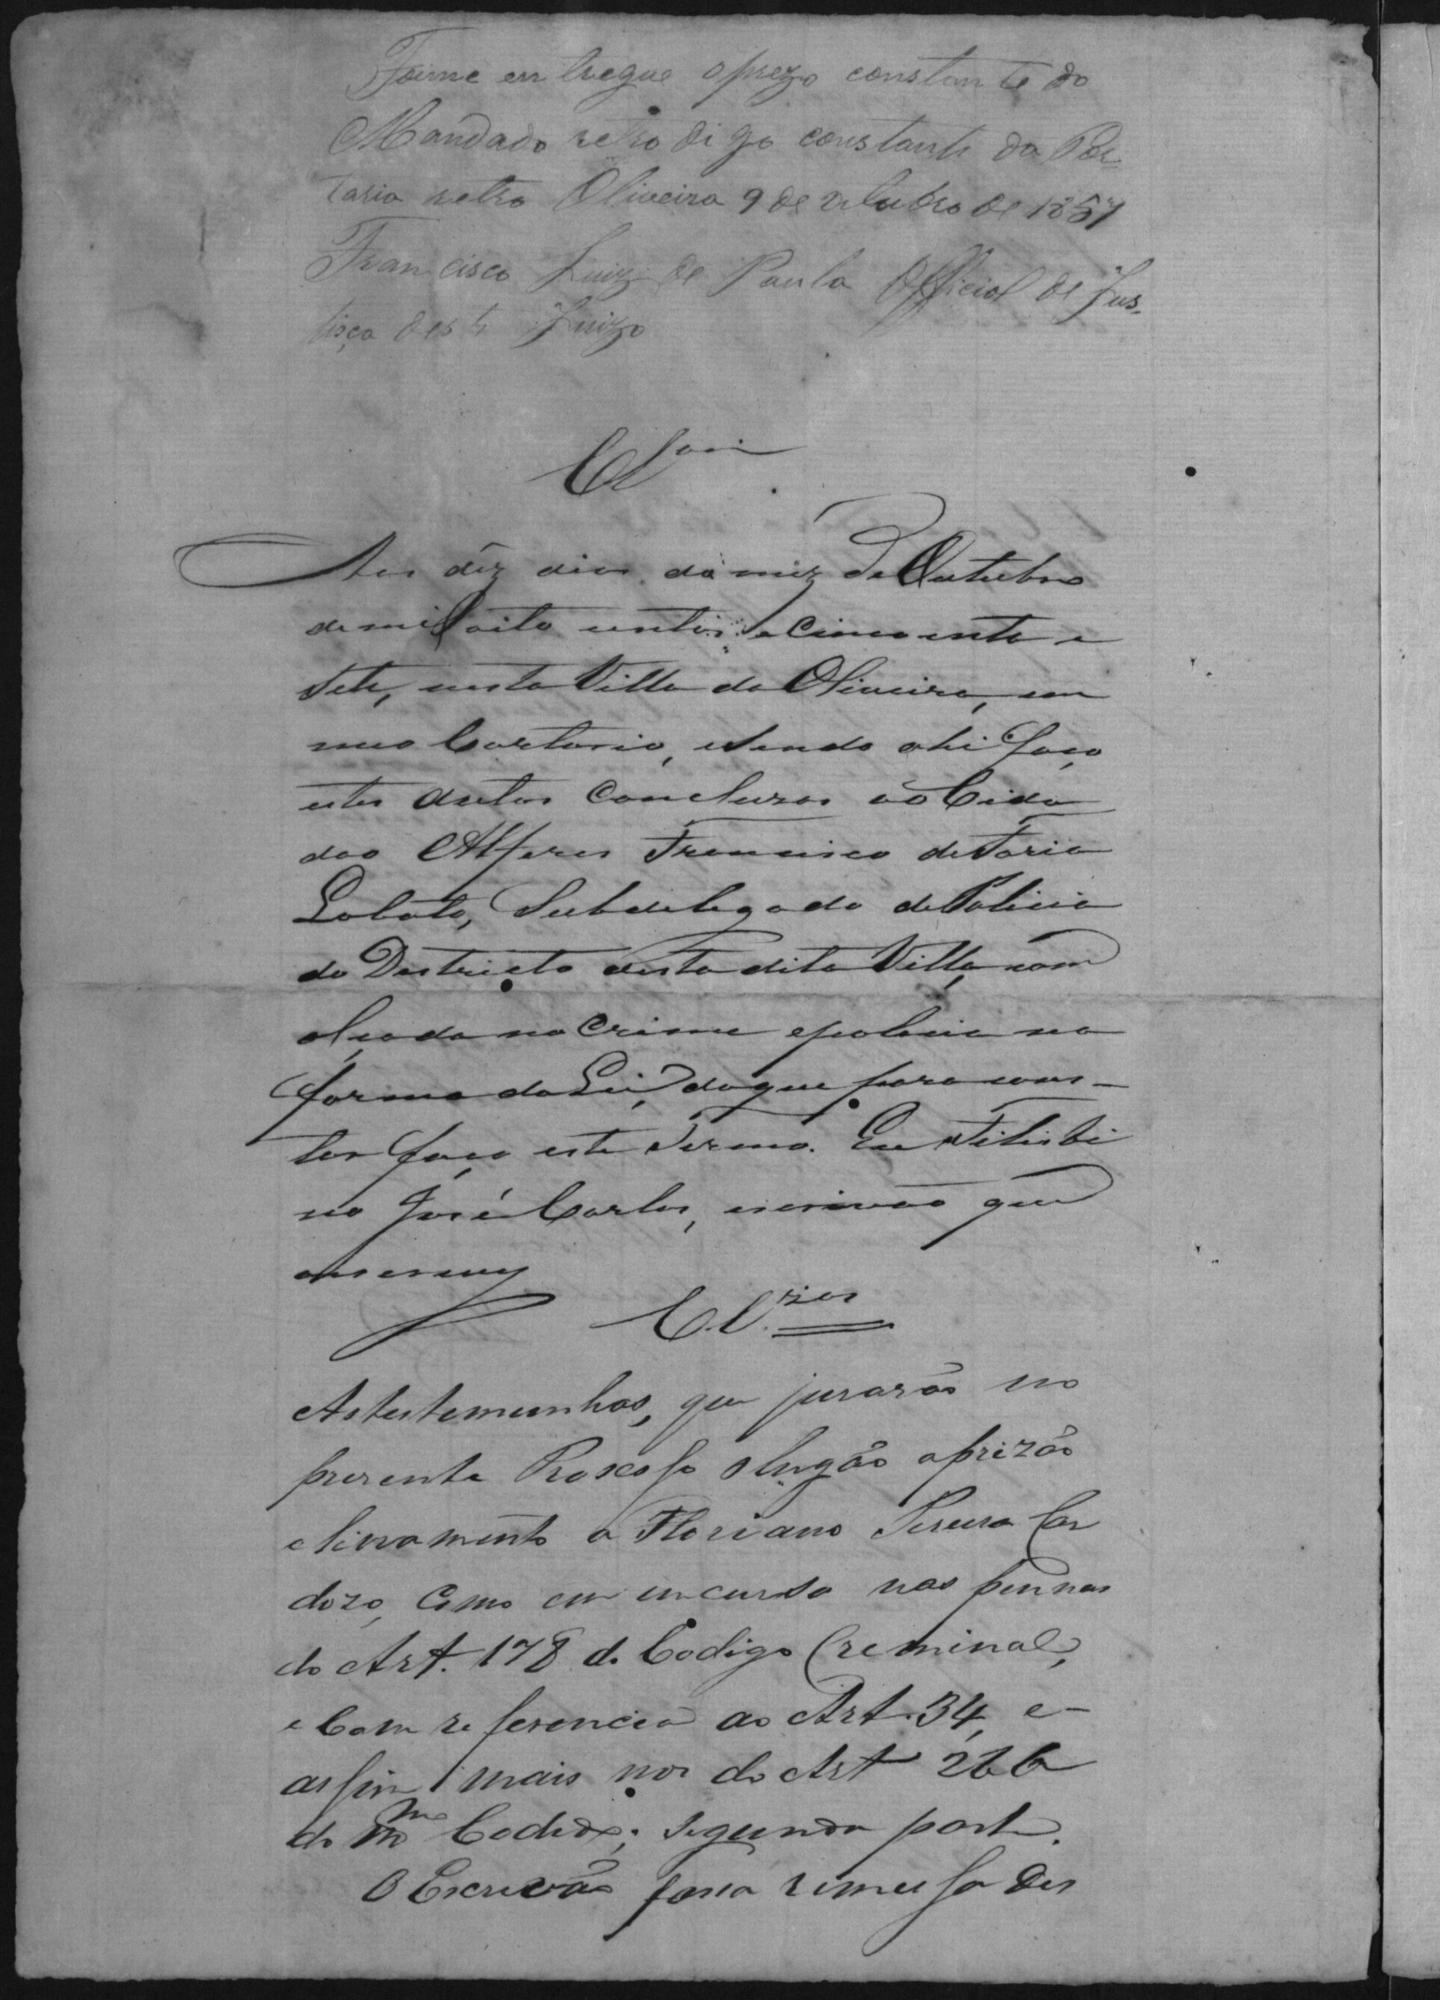 Foime entregue o prezo constante do
Mandado retro digo constante da Por
taria retro Oliveira 9 de outubro de 1857
Francisco Luiz de Paula Official de Jus-
tiça deste Juizo
Clsm
Aos déz dias do mez de Outubro
de mil oito centos e cincoenta e
Sete, nesta Villa de Oliveira, em
meo Cartorio, e sendo ahi faço
estes autos Concluzos áo Cida
dão Alferes Francisco de Faria
Lobato, Subdelegado de Policia
do Destricto desta dita Villa, com
alçada no Crime e policia na
forma da Lei, do que para cons-
tar faço este Termo. Eu Felisbi
no José Carlos, escrivão que
o escrevy
Cl.zos
As testemunhas, que jurarão no
prezente Proxesso obrigão a prizão
e livramento a Floriano Pereira Car
dozo, Como em incurso nas pennas
do Art. 178 do Codigo Creminal,
e Com referencia ao Art. 34, e
assim mais nos do Art 266
do mmo Codeds; segunda parte.
O Escrivão fassa remessa des